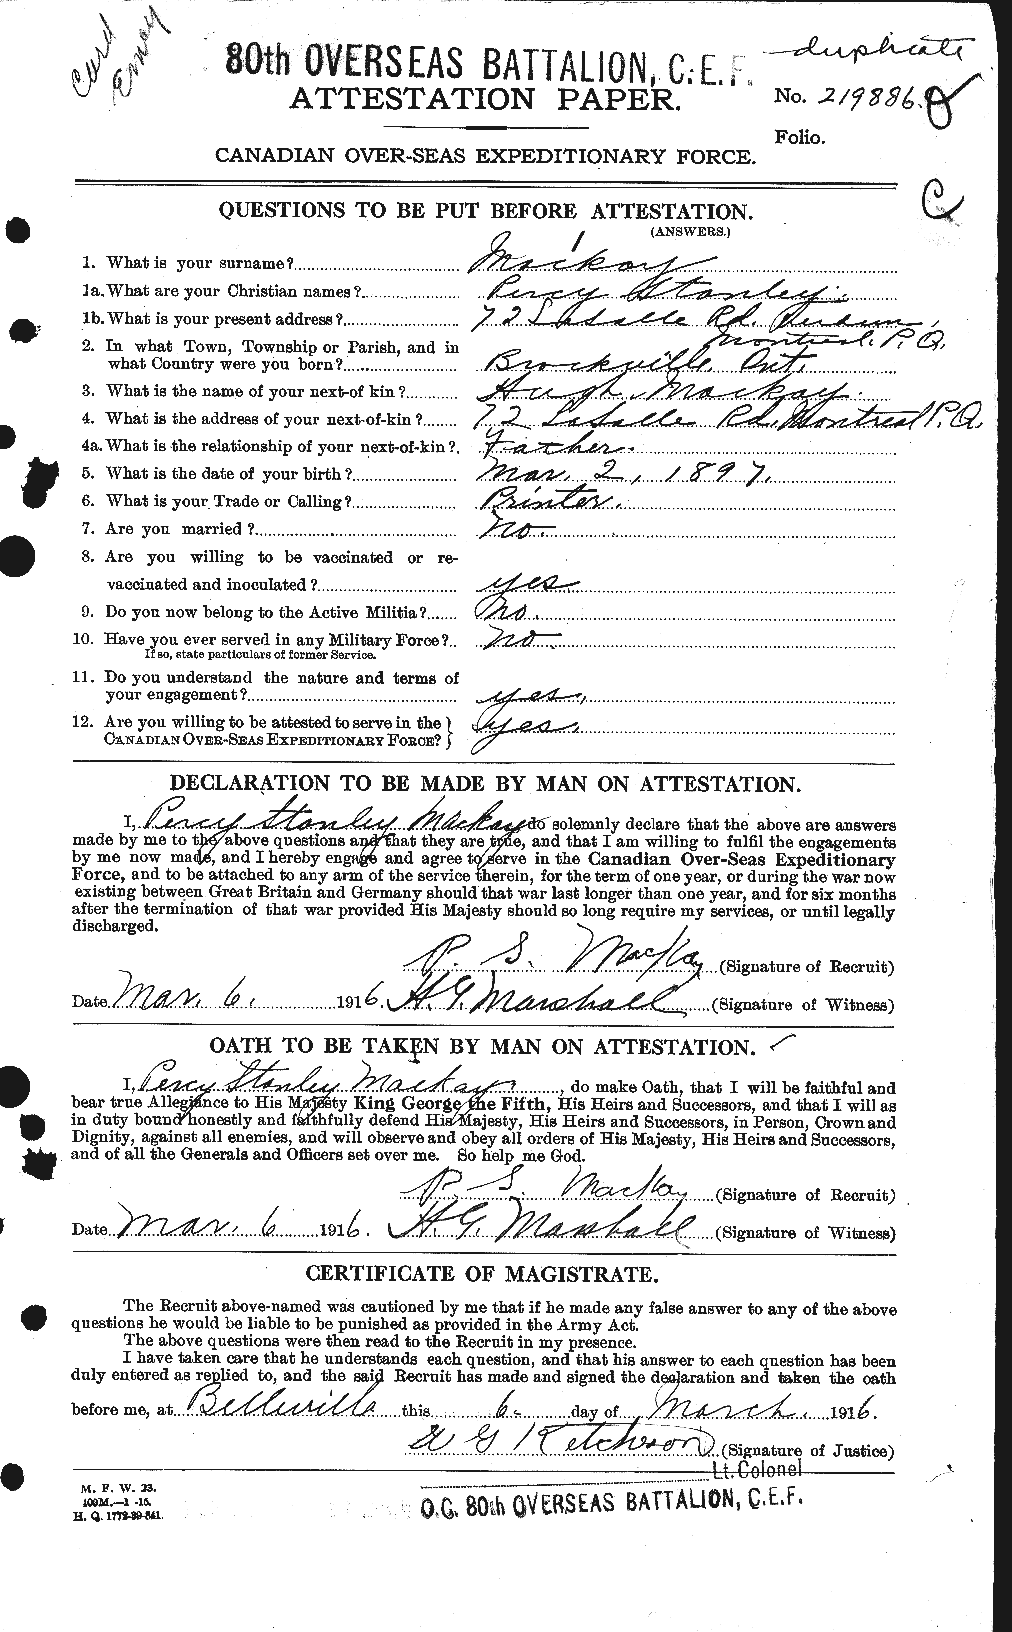 Card
80th OVERSEAS BATTALION, C.E.F.
duplicate
ATTESTATION PAPER.
No. 219886.
Folio.
CANADIAN OVER-SEAS EXPEDITIONARY FORCE.
C
QUESTIONS TO BE PUT BEFORE ATTESTATION.
(ANSWERS.)
1. What is your surname? Mackay
1a. What are your Christian names? Percy Stanley.
1b. What is your present address? 72 LaSalle Rd. Verdun, Montreal. P.Q.
2. In what Town, Township or Parish, and in
what Country were you born? Brockville Ont.
3. What is the name of your next-of kin? Hugh Mackay.
4. What is the address of your next-of-kin? 72 LaSalle Rd. Montreal P.Q.
4a. What is the relationship of your next-of-kin? Father.
5. What is the date of your birth? Mar. 2, 1897.
6. What is your Trade or Calling? Printer.
7. Are you married? No.
8. Are you willing to be vaccinated or re-
vaccinated and inoculated? yes
9. Do you now belong to the Active Militia? No.
10. Have you ever served in any Military Force? No.
If so, state particulars of former Service.
11. Do you understand the nature and terms of
your engagement? yes.
12. Are you willing to be attested to serve in the
CANADIAN OVER-SEAS EXPEDITIONARY FORCE? yes.
DECLARATION TO BE MADE BY MAN ON ATTESTATION.
I, Percy Stanley Mackay do solemnly declare that the above are answers
made by me to the above questions and that they are true, and that I am willing to fulfil the engagements
by me now made, and I hereby engage and agree to serve in the Canadian Over-Seas Expeditionary
Force, and to be attached to any arm of the service therein, for the term of one year, or during the war now
existing between Great Britain and Germany should that war last longer than one year, and for six months
after the termination of that war provided His Majesty should so long require my services, or until legally
discharged.
P. S. MacKay (Signature of Recruit)
Date Mar. 6. 1916. H.G. Marshall (Signature of Witness)
OATH TO BE TAKEN BY MAN ON ATTESTATION.
I, Percy Stanley Mackay, do make Oath, that I will be faithful and
bear true Allegiance to His Majesty King George the Fifth, His Heirs and Successors, and that I will as
in duty bound honestly and faithfully defend His Majesty, His Heirs and Successors, in Person, Crown and
Dignity, against all enemies, and will observe and obey all orders of His Majesty, His Heirs and Successors,
and of all the Generals and Officers set over me. So help me God.
P. S. MacKay (Signature of Recruit)
Date Mar. 6 1916. H.G. Marshall (Signature of Witness)
CERTIFICATE OF MAGISTRATE.
The Recruit above-named was cautioned by me that if he made any false answer to any of the above
questions he would be liable to be punished as provided in the Army Act.
The above questions were then read to the Recruit in my presence.
I have taken care that he understands each question, and that his answer to each question has been
duly entered as replied to, and the said Recruit has made and signed the declaration and taken the oath
before me, at Belleville this 6. day of March. 1916.
W G Ketcheson (Signature of Justice)
Lt. Colonel
M. F. W. 23.
100M.—1 -15.
H. Q. 1772-39-841.
O.C. 80th OVERSEAS BATTALION, C.E.F.